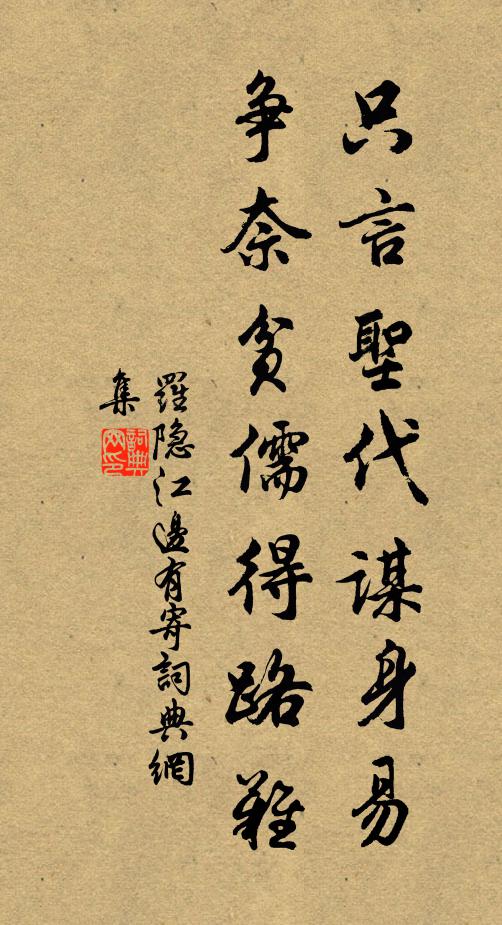 只言聖代謀身易
争奈貧儒得路難
羅隐江邊有寄詞典網
集
詞典網印